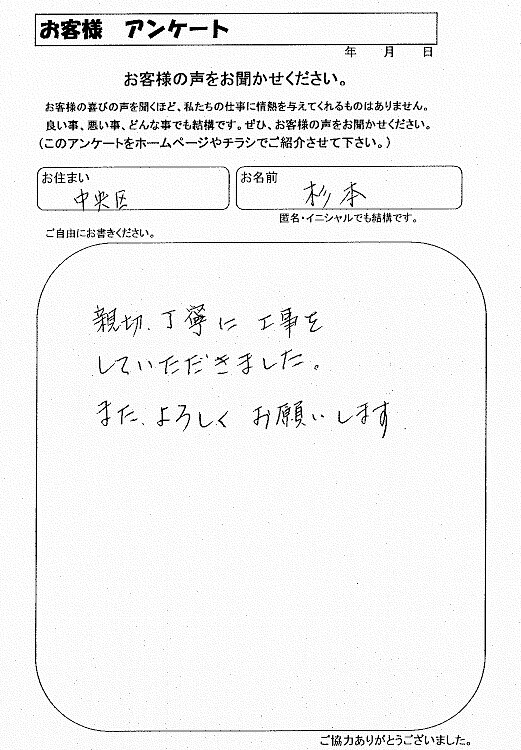 お客様 アンケート
年 月 日
お客様の声をお聞かせください。
お客様の喜びの声を聞くほど、私たちの仕事に情熱を与えてくれるものはありません。
良い事、悪い事、どんな事でも結構です。ぜひ、お客様の声をお聞かせください。
(このアンケートをホームページやチラシでご紹介させて下さい。)
お住まい
中央区
お名前
杉本
匿名・イニシャルでも結構です。
ご自由にお書きください。
親切、丁寧に 工事を
していただきました。
また、よろしく お願いします
ご協力ありがとうございました。